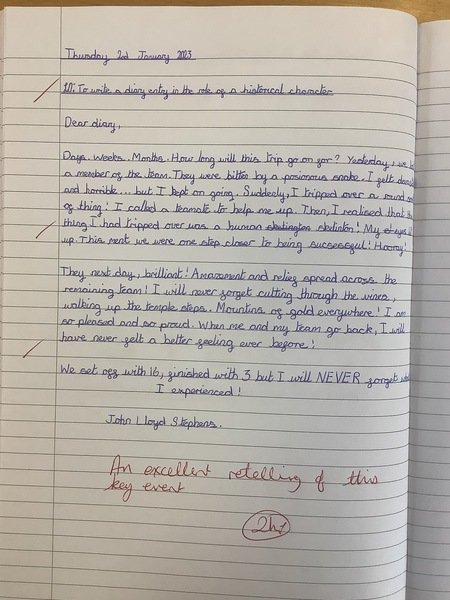 Thursday 2nd January 2023
LO: To write a diary entry in the role of a historical character
Dear diary,
Days. Weeks. Months. How long will this trip go on for? Yesterday, we
a member of the team. They were bitten by a poisonous snake. I felt
and horrible... but I kept on going. Suddely, I tripped over a round
of thing! I called a teamate to help me up. Then, I realised that
thing I had tripped over was a human skelington skelinton! My
up. This ment we were one step closer to being successful! Hooray!
They next day, brilliant! Amazement and relief spread across the
remaining team! I will never forget cutting through the vines,
walking up the temple steps. Mountins of gold everywhere! I am
so pleased and so proud. When me and my team go back, I will
have never felt a better feeling ever before!
We set off with 16, finished with 3 but I will NEVER forget
I experienced!
John Lloyd Stephens.
An excellent retelling of this
key event
2h1